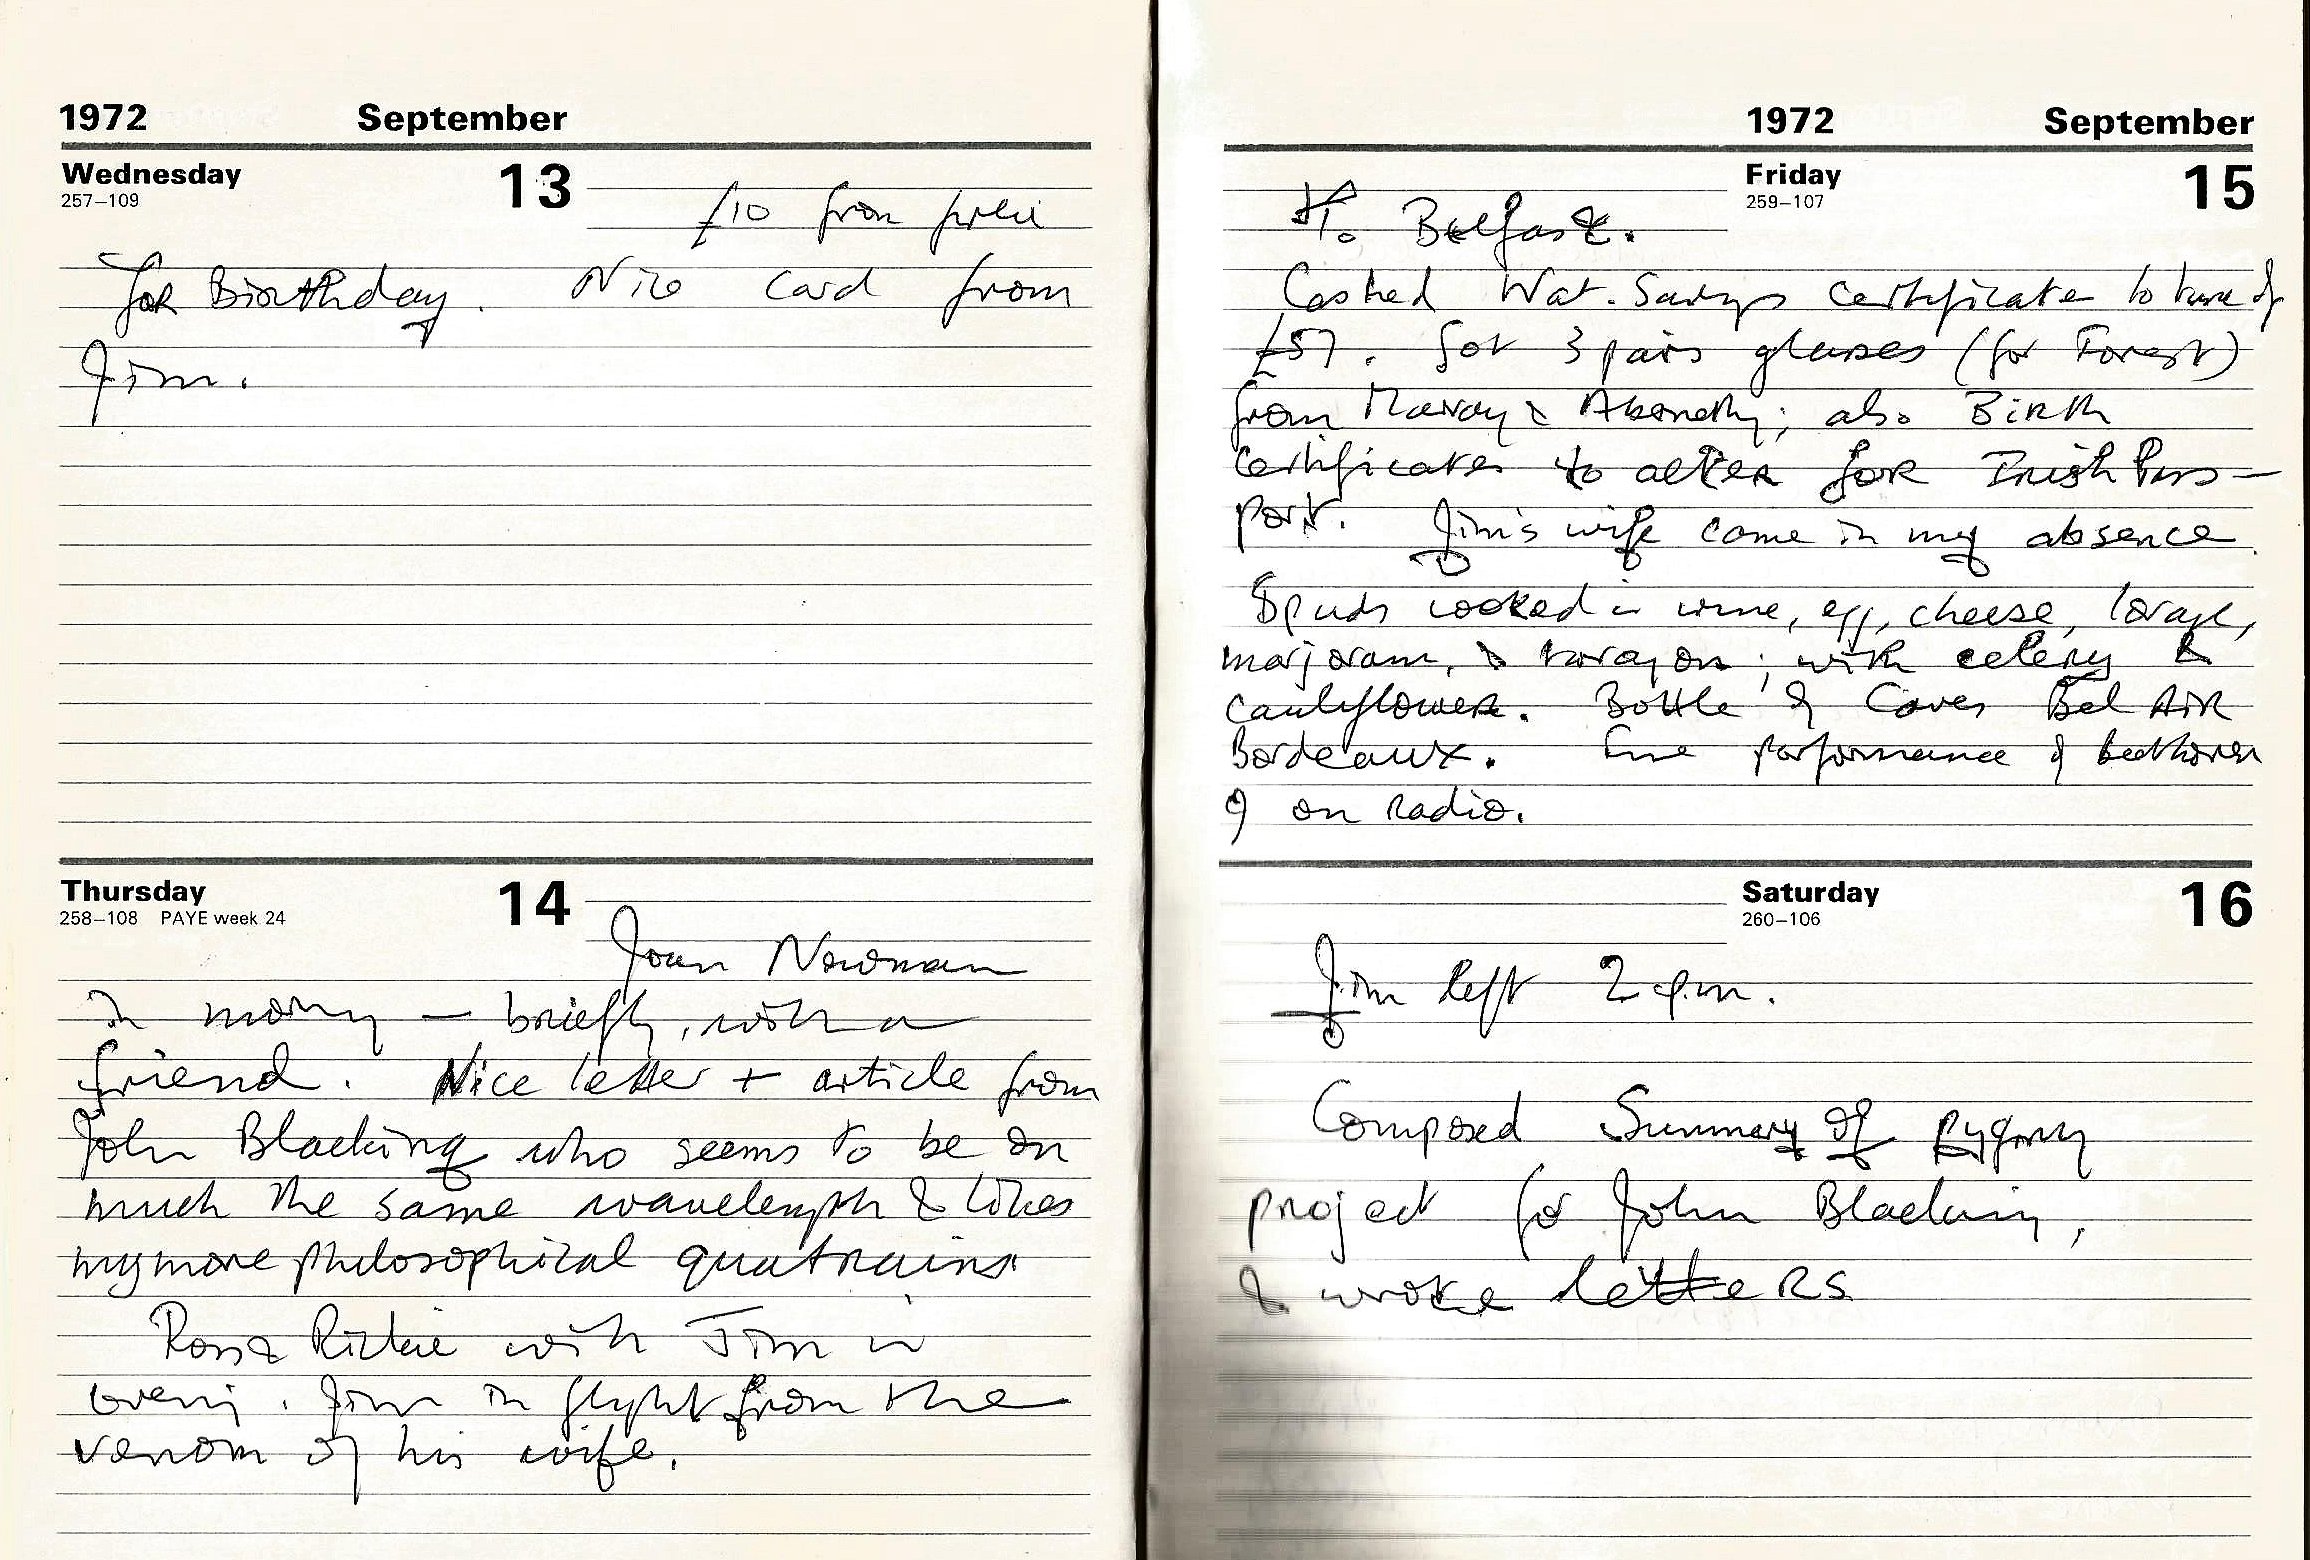 1972 September
Wednesday 13
257–109
£10 from
for Birthday. Nice card from
Jim.
Thursday 14
258–108 PAYE week 24
Joan Newman
in morning — briefly, with a
friend. Nice letter + article from
John Blacking who seems to be on
much the same wavelength & likes
my more philosophical quatrains
Ritchie with Jim in
evening. Jim in flight from the
venom of his wife.
1972 September
Friday 15
259–107
To Belfast.
Cashed Nat. Savings Certificate to tune of
£57. Got 3 pairs glasses (for Forest)
from Murray & Abernethy; also Birth
Certificates to alter for Irish Pass-
port. Jim's wife came in my absence.
Spuds cooked in wine, egg, cheese, lovage,
marjoram, & taragon; with celery &
cauliflower. Bottle of Caves Bel Air
Bordeaux. Fine performance of Beethoven
9 on radio.
Saturday 16
260–106
Jim left 2 p.m.
Composed Summary of pygmy
project for John Blacking,
& wrote letters